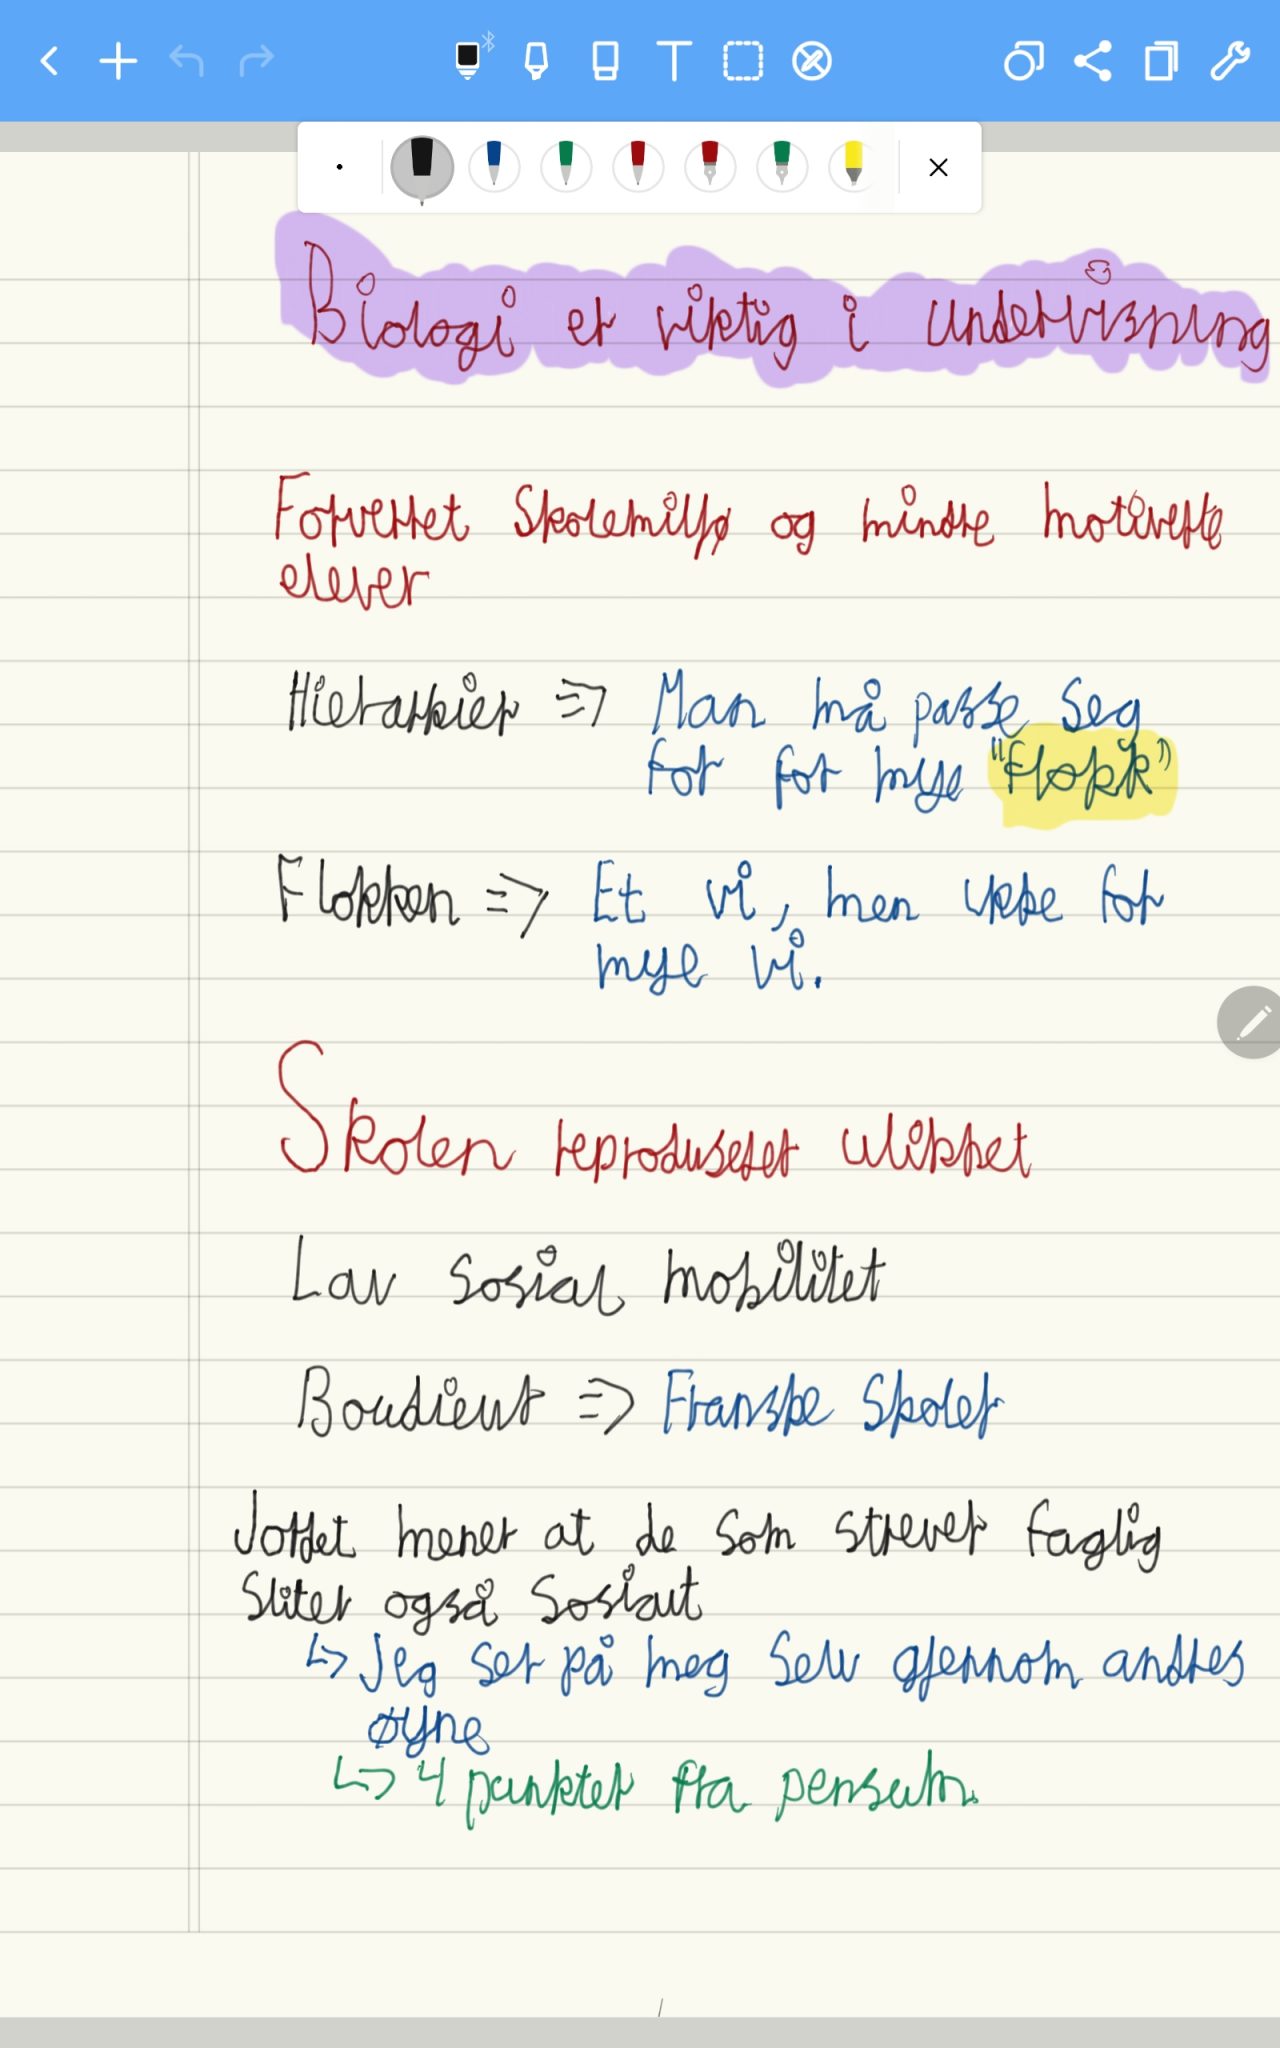 Biologi er viktig i undervisning
Forverret Skolemiljø og mindre motiverte
elever
Hierarkier => Man må passe seg
for for mye "flokk"
Flokken => Et vi, men ikke for
mye vi.
Skolen reproduserer ulikhet
Lav sosial mobilitet
Boudieur => Franske Skoler
Jordet mener at de som strever faglig
sliter også sosialt
↳ Jeg ser på meg selv gjennom andres
øyne
↳ 4 punkter fra pensum.